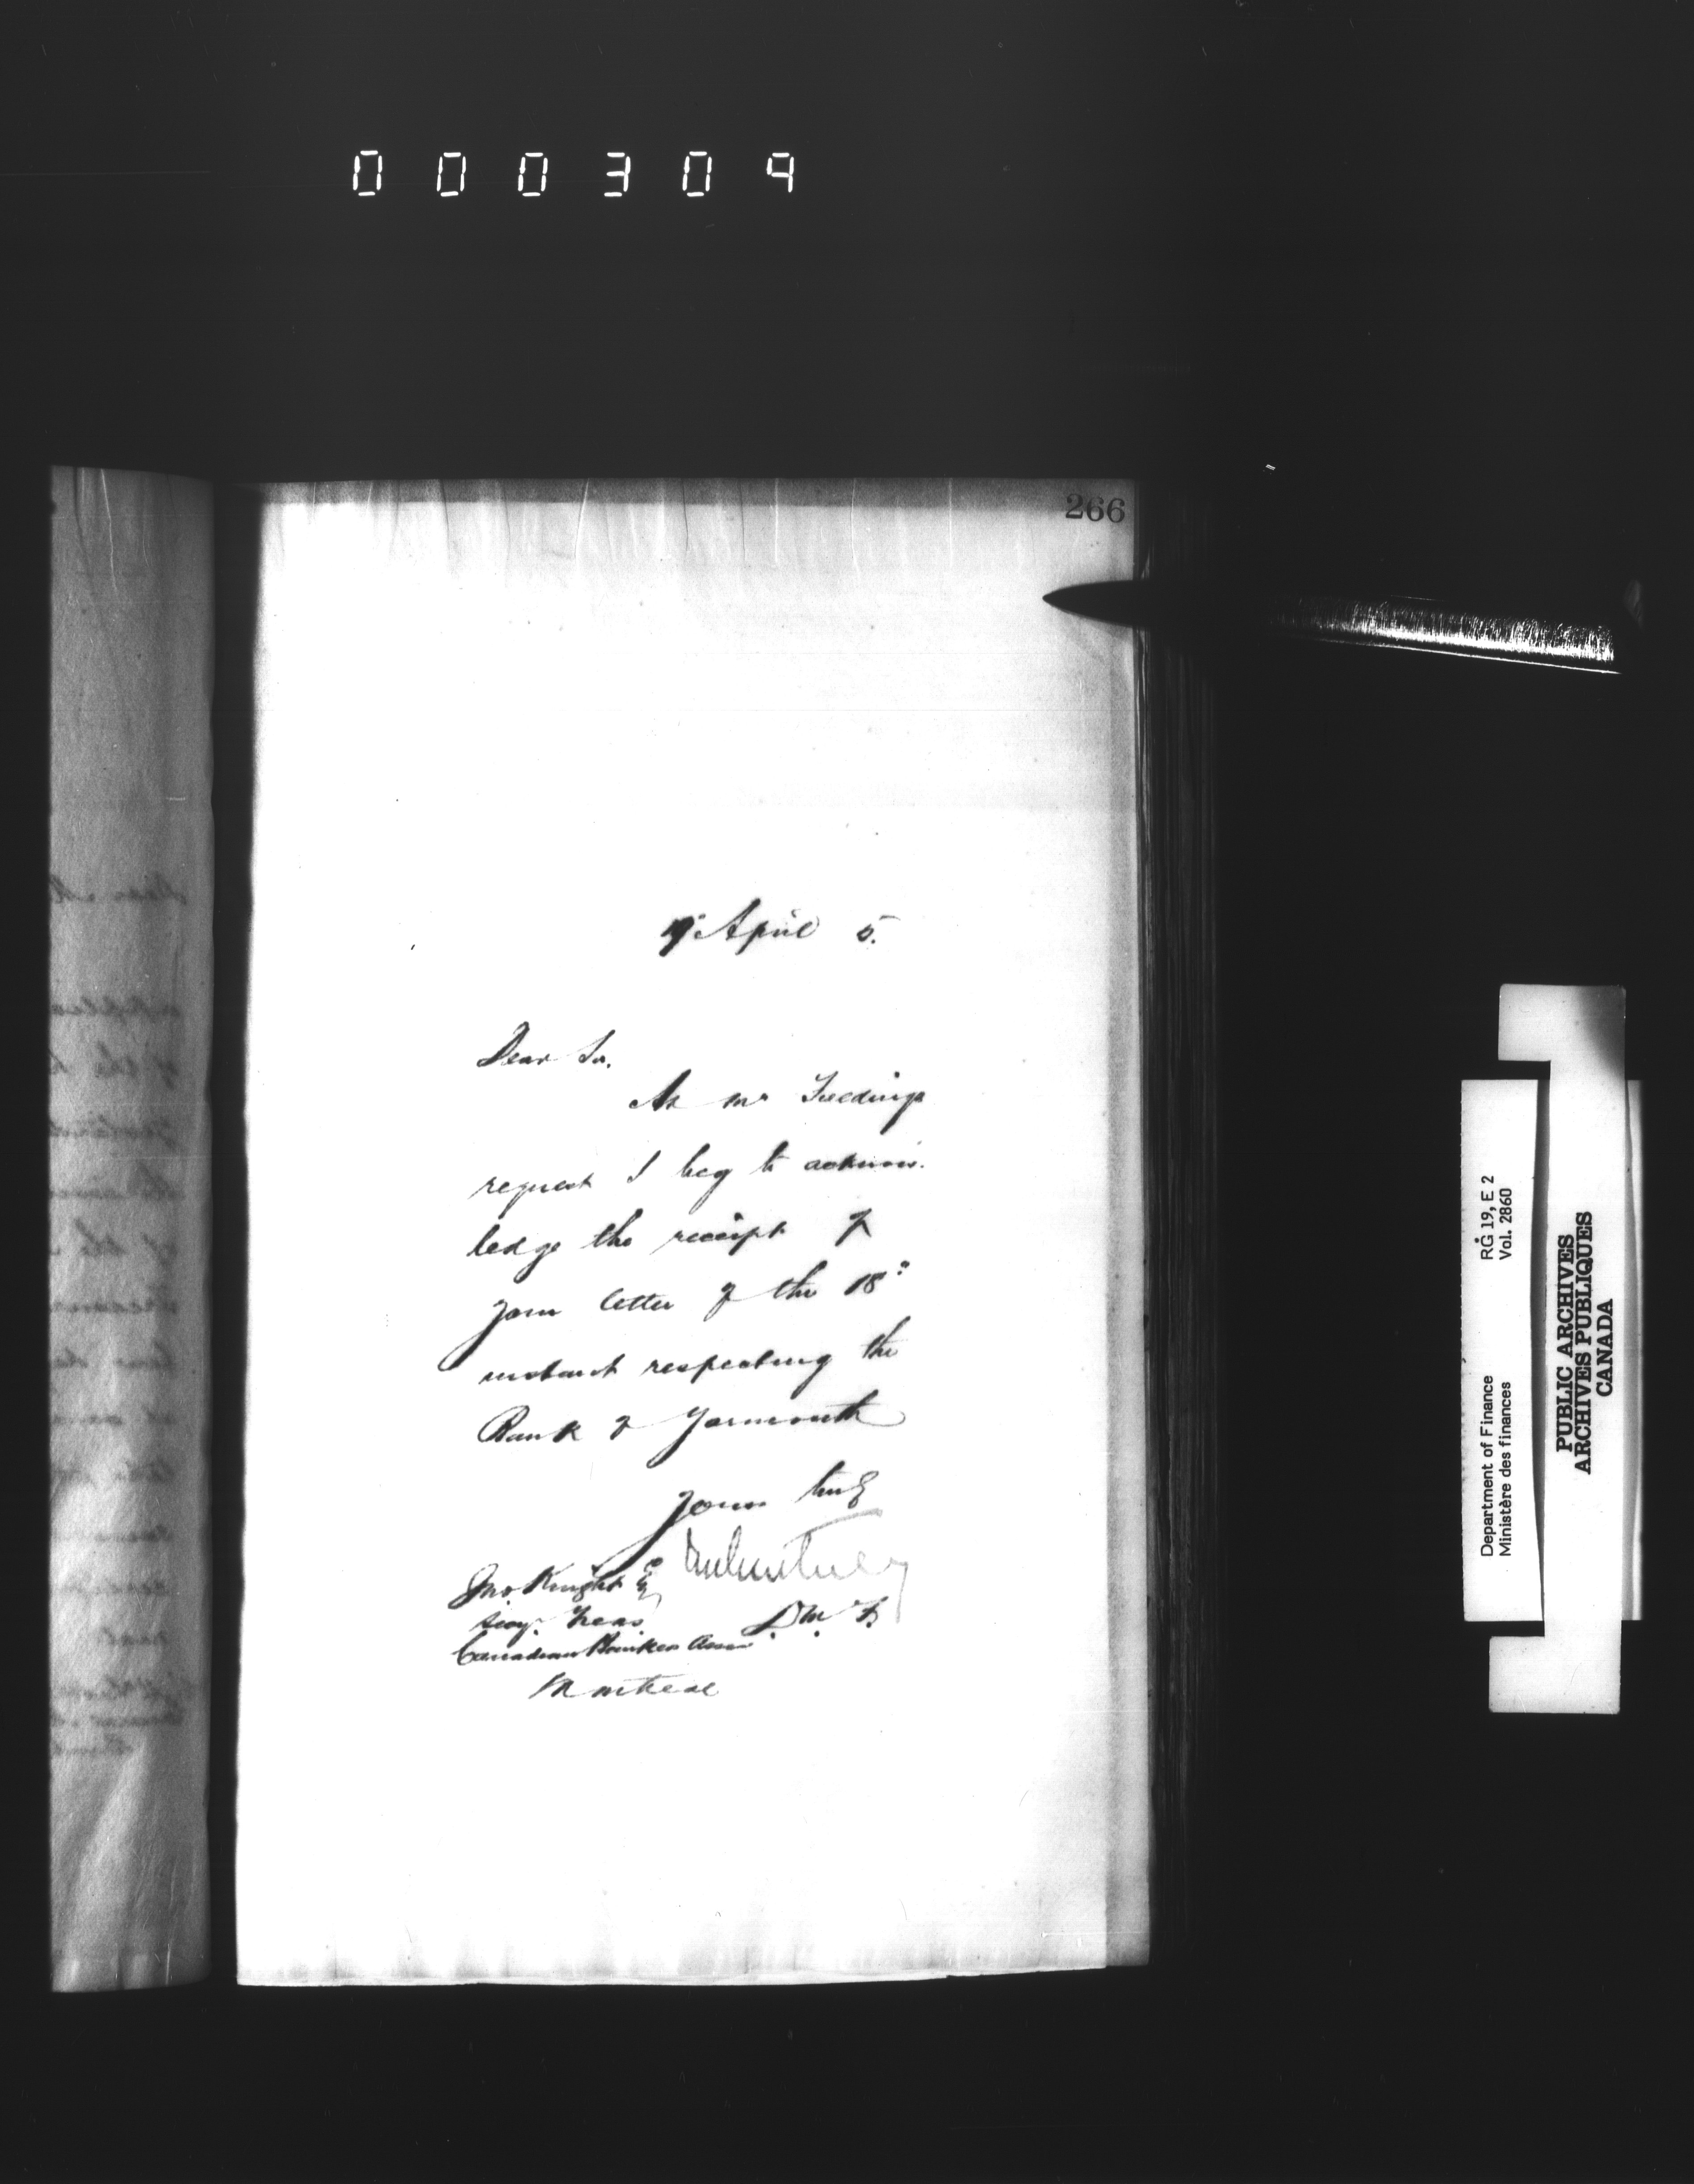 000304
266
19 April 5.
Dear Sir,
At Mr Fieldings
request I beg to acknow-
ledge the receipt of
your letter of the 18th
instant respecting the
Bank of Yarmouth
Yours truly
Jno. Knight Esq
Secy. Treas
D. M. F.
Canadian Bankers Assn.
Montreal
Department of Finance RG 19, E 2
Ministère des finances Vol. 2860
PUBLIC ARCHIVES
ARCHIVES PUBLIQUES
CANADA